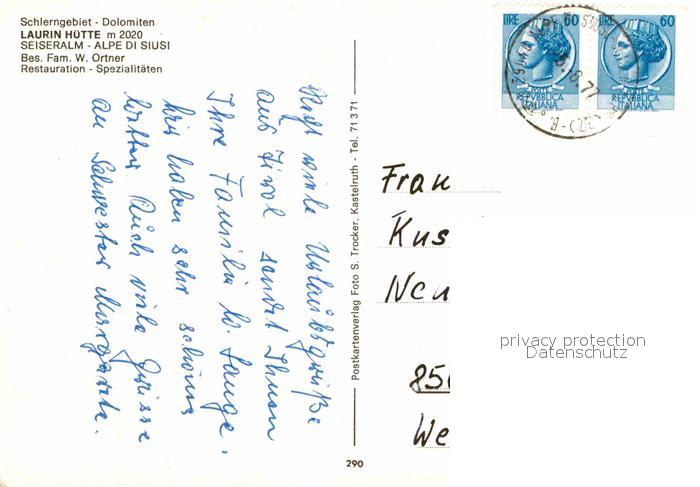 Schlerngebiet - Dolomiten
LAURIN HÜTTE m 2020
SEISERALM - ALPE DI SIUSI
Bes. Fam. W. Ortner
Restauration - Spezialitäten
viele Urlaubsgrüße
aus Tirol sendet Ihnen
Ihre Familie W. Lange.
Wir haben sehr schönes
Wetter. Auch viele Grüsse
an Schwester Margarete.
Postkartenverlag Foto S. Trocker, Kastelruth - Tel. 71371
290
LIRE 60
REPVBBLICA
ITALIANA
LIRE 60
REPVBBLICA
ITALIANA
.8.77
Frau
Kus
Neu
850
We
privacy protection
Datenschutz